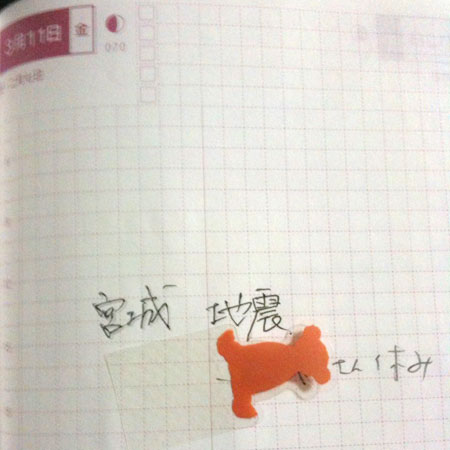 3月11日 金
070
宮城 地震
さん休み